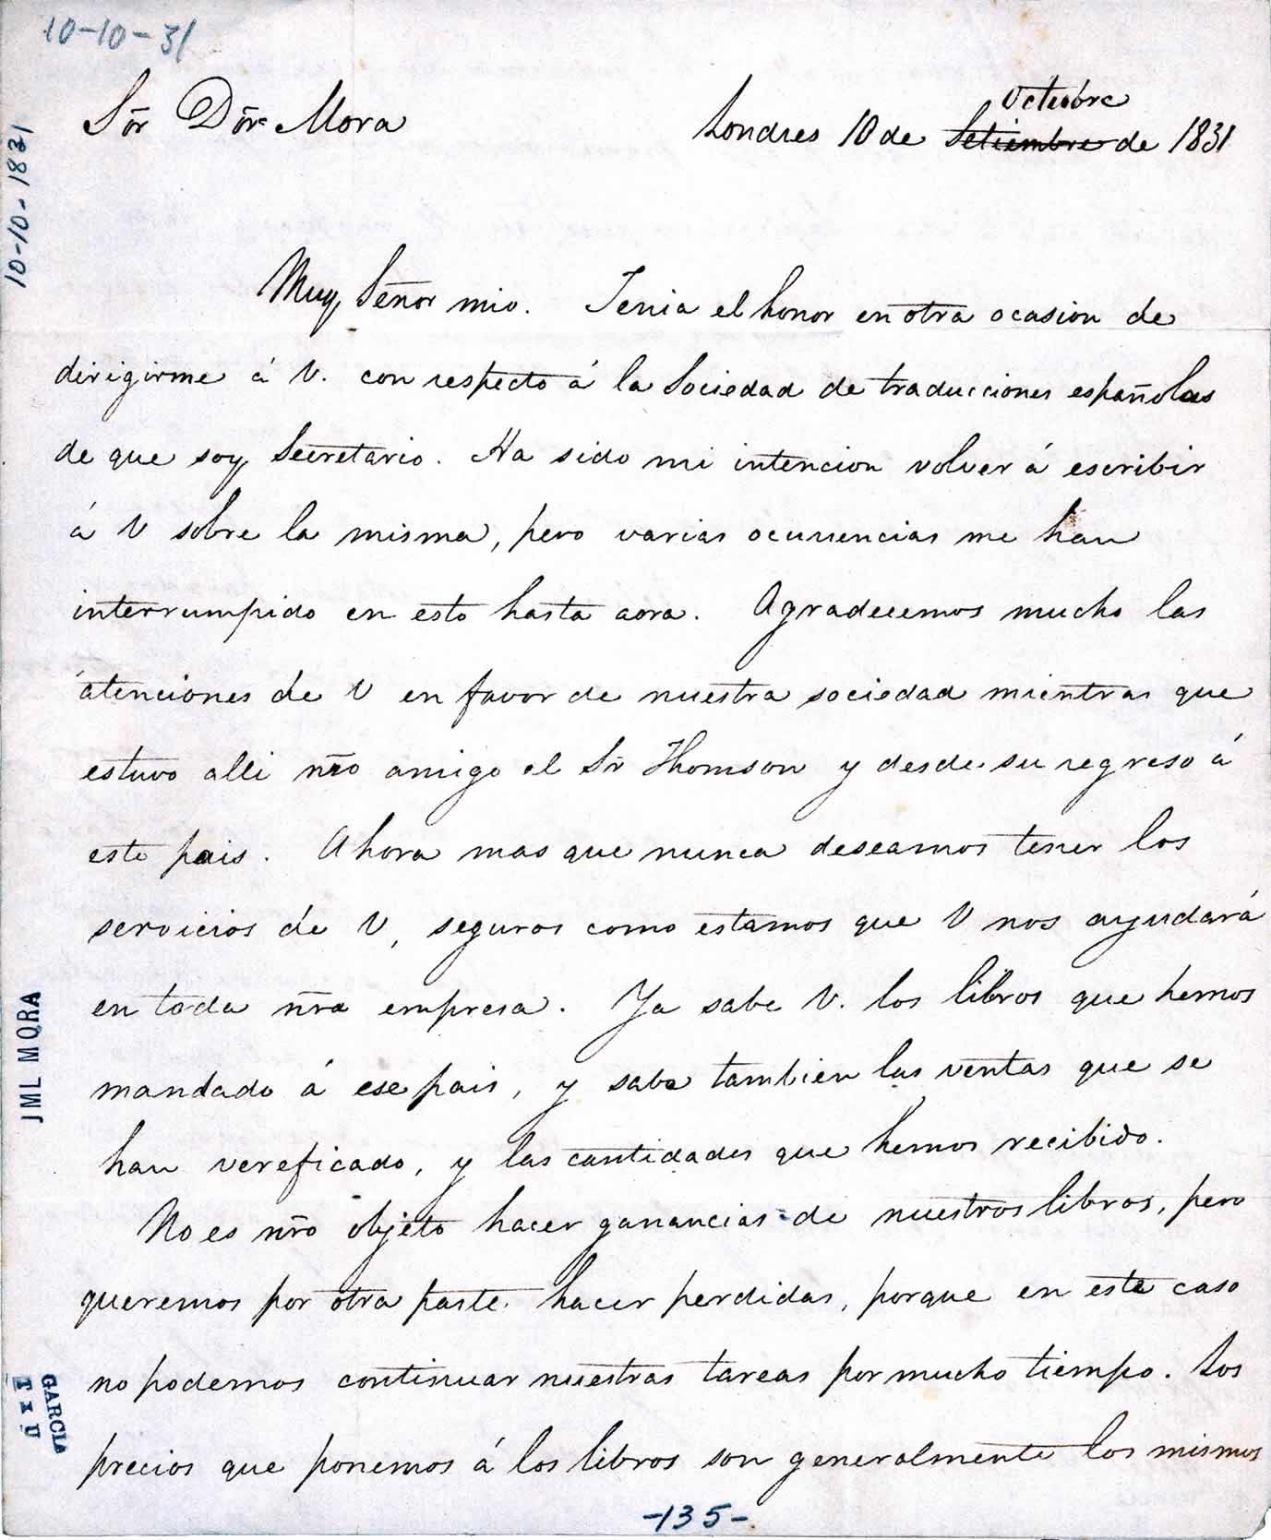 10-10-31
Sōr Dōr Mora
Octubre
Londres 10 de Setiembre de 1831
10-10-1831
Muy Señor mio. Tenia el honor en otra ocasion de
dirigirme á V. con respecto á la Sociedad de traducciones españolas
de que soy Secretario. Ha sido mi intencion volver á escribir
á V sobre la misma, pero varias ocurrencias me han
interrumpido en esto hasta aora. Agradecemos mucho las
atenciones de V en favor de nuestra sociedad mientras que
estuvo alli nr̄o amigo el Sr Thomson y desde su regreso á
este pais. Ahora mas que nunca deseamos tener los
servicios de V, seguros como estamos que V nos ayudará
en toda nr̄a empresa. Ya sabe V. los libros que hemos
mandado á ese pais, y sabe tambien las ventas que se
han vereficado, y las cantidades que hemos recibido.
No es nr̄o objeto hacer ganancias de nuestros libros, pero
queremos por otra parte hacer perdidas, porque en este caso
no podemos continuar nuestras tareas por mucho tiempo. Los
precios que ponemos á los libros son generalmente los mismos
JML MORA
GARCIA
-135-.